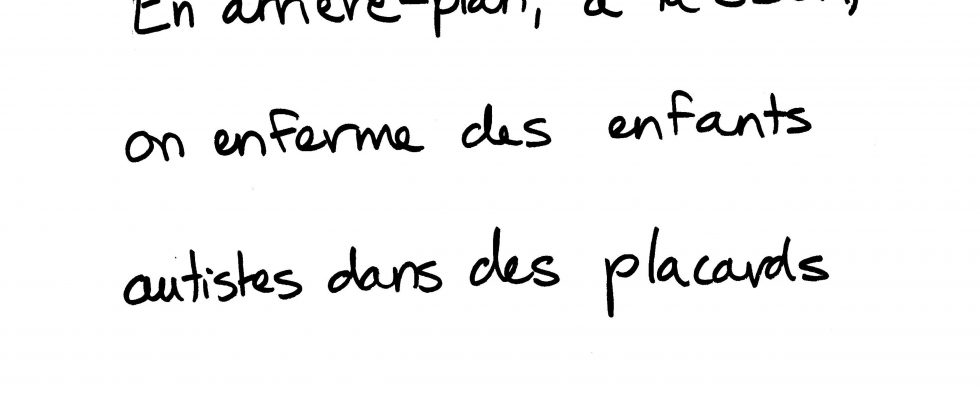 En arrière-plan, à la
on enferme des enfants
autistes dans des placards